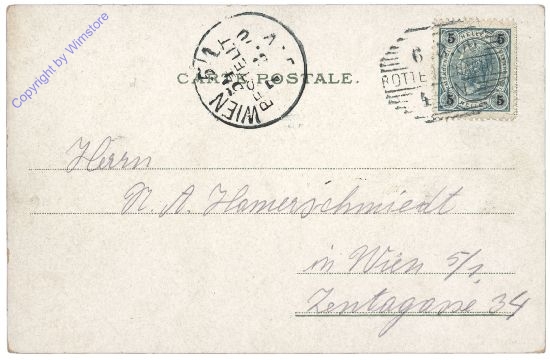 Copyright by Wimstore
CARTE POSTALE.
WIEN 5/1
BESTELLT
5 5
5 5
6
ROTTE
4
Herrn
N. A. Hamerschmiedt
in Wien 5/1
Zentagasse 34